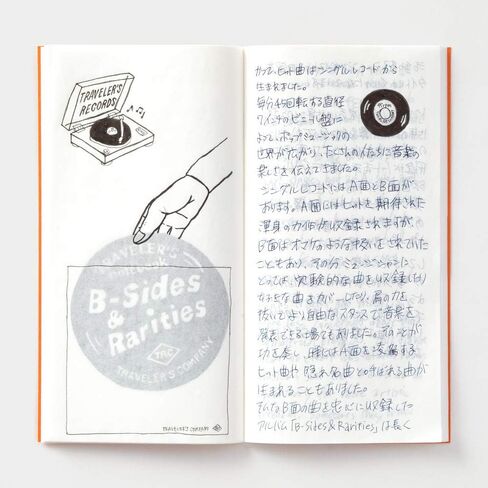 TRAVELER'S
RECORDS
TRAVELER'S
B-Sides
&
Rarities
TRC
TRAVELER'S COMPANY
TRAVELER'S COMPANY
かつて、ヒット曲はシングルレコードから
生まれました。
毎分45回転する直径
7インチのビニール盤に
よって、ポップミュージックの
世界が広がり、たくさんの人たちに音楽の
楽しさを伝えてきました。
シングルレコードにはA面とB面が
あります。A面にはヒットを期待された
渾身の力作が収録されますが
B面はオマケのような扱いをされていた
こともあり、その分ミュージシャンに
とっては、実験的な曲を収録したり
好きな曲をカバーしたり、肩の力を
抜いてより自由なスタンスで音楽を
発表できる場でもありました。そのことが
功を奏し、時にはA面を凌駕する
ヒット曲や隠れ名曲と呼ばれる曲が
生まれることもありました。
そんなB面の曲を中心に収録した
アルバム「B-Sides & Rarities」は長く